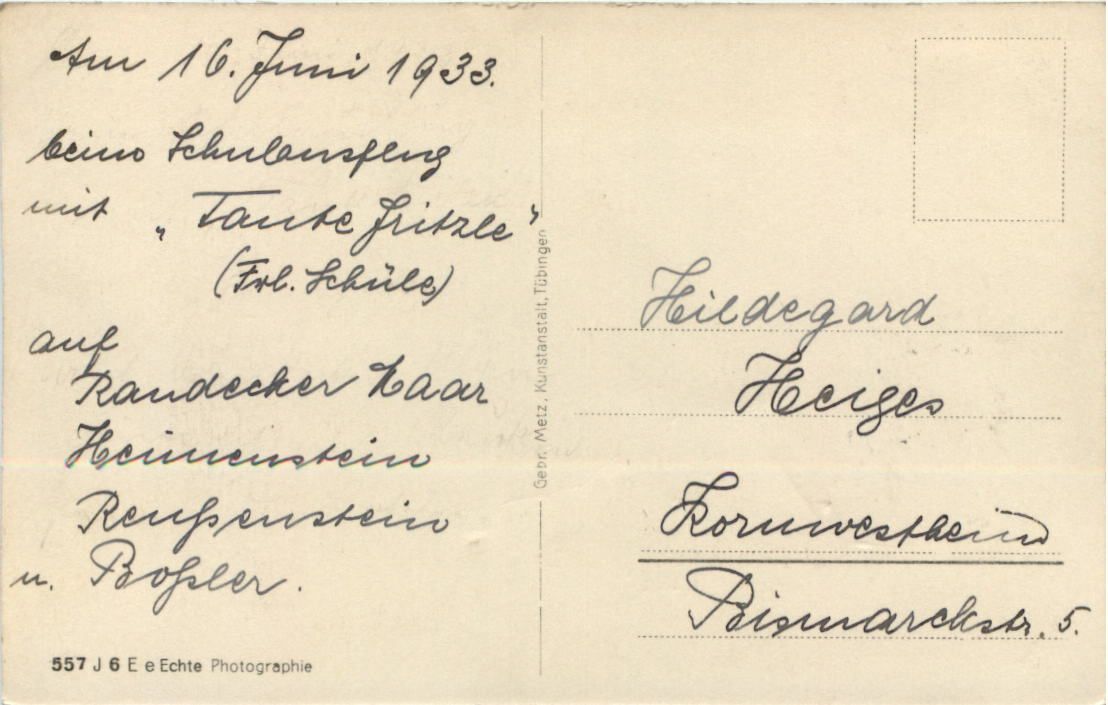 Am 16. Juni 1933.
beim Schulausflug
mit „Tante Fritzle"
(Frl. Schüle)
auf
Randecker Maar
Heimenstein
Reußenstein
u. Boßler.
557 J 6 E e Echte Photographie
Gebr. Metz, Kunstanstalt, Tübingen
Hildegard
Heiges
Kornwestheim
Bismarckstr. 5.